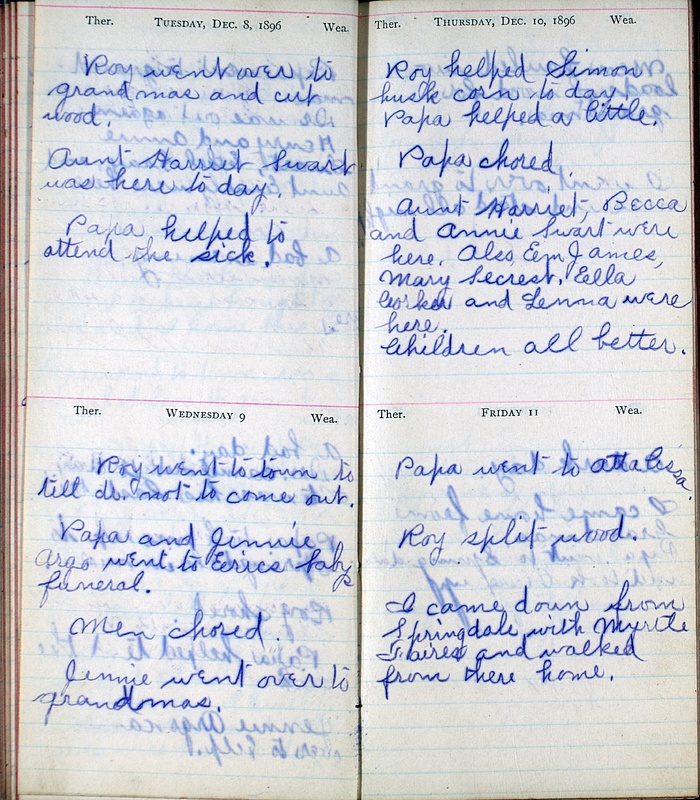 Ther. TUESDAY, DEC. 8, 1896 Wea.
Roy went over to
grandmas and cut
wood.
Aunt Harriet Swart
was here to day.
Papa helped to
attend the sick.
Ther. WEDNESDAY 9 Wea.
Roy went to town to
tell dr. not to come out.
Papa and Jinnie
Argo went to Eerics baby
funeral.
Men chored.
Jennie went over to
grandmas.
Ther. THURSDAY, DEC. 10, 1896 Wea.
Roy helped Simon
husk corn to day
Papa helped a little.
Papa chored.
Aunt Harriet, Becca
and Annie Swart were
here. Also Em James,
Mary Secrest, Eella
and Lenna were
here.
Children all better.
Ther. FRIDAY 11 Wea.
Papa went to attalissa.
Roy split wood.
I came down from
Springdale with Myrtle
and walked
from there home.